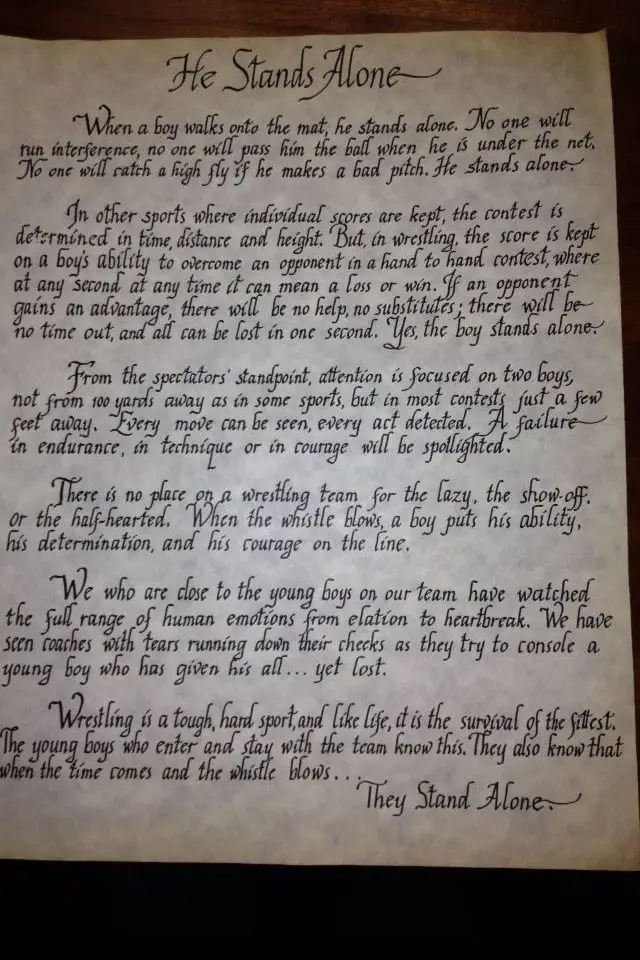 He Stands Alone
When a boy walks onto the mat, he stands alone. No one will
run interference, no one will pass him the ball when he is under the net.
No one will catch a high fly if he makes a bad pitch. He stands alone.
In other sports where individual scores are kept, the contest is
determined in time, distance and height. But, in wrestling, the score is kept
on a boy's ability to overcome an opponent in a hand to hand contest, where
at any second at any time it can mean a loss or win. If an opponent
gains an advantage, there will be no help, no substitutes; there will be
no time out, and all can be lost in one second. Yes, the boy stands alone.
From the spectators' standpoint, attention is focused on two boys,
not from 100 yards away as in some sports, but in most contests just a few
feet away. Every move can be seen, every act detected. A failure
in endurance, in technique or in courage will be spotlighted.
There is no place on a wrestling team for the lazy, the show-off,
or the half-hearted. When the whistle blows, a boy puts his ability,
his determination, and his courage on the line.
We who are close to the young boys on our team have watched
the full range of human emotions from elation to heartbreak. We have
seen coaches with tears running down their checks as they try to console a
young boy who has given his all... yet lost.
Wrestling is a tough, hard sport, and like life, it is the survival of the fittest.
The young boys who enter and stay with the team know this. They also know that
when the time comes and the whistle blows...
They Stand Alone.